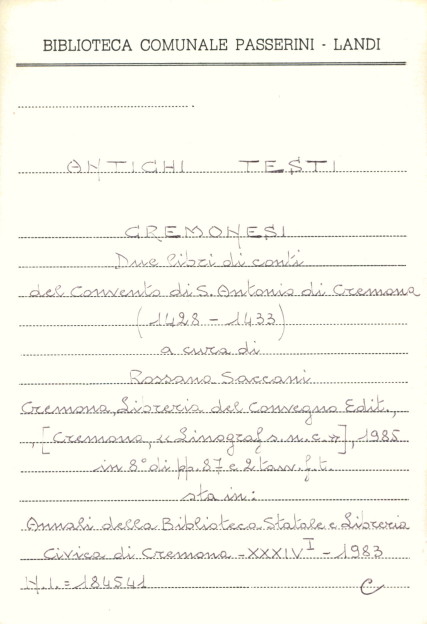 BIBLIOTECA COMUNALE PASSERINI - LANDI
ANTICHI TESTI
CREMONESI
Due libri di conti
del Convento di S. Antonio di Cremona
(1428 - 1433)
a cura di
Rossano Saccani
Cremona, Libreria del Convegno Edit.,
, [Cremona, "Linograf s.n.c."], 1985
in 8° di pp. 87 e 2 tavv. f.t.
sta in:
Annali della Biblioteca Statale e Libreria
Civica di Cremona - XXXIV I - 1983
N.I. = 184541 C